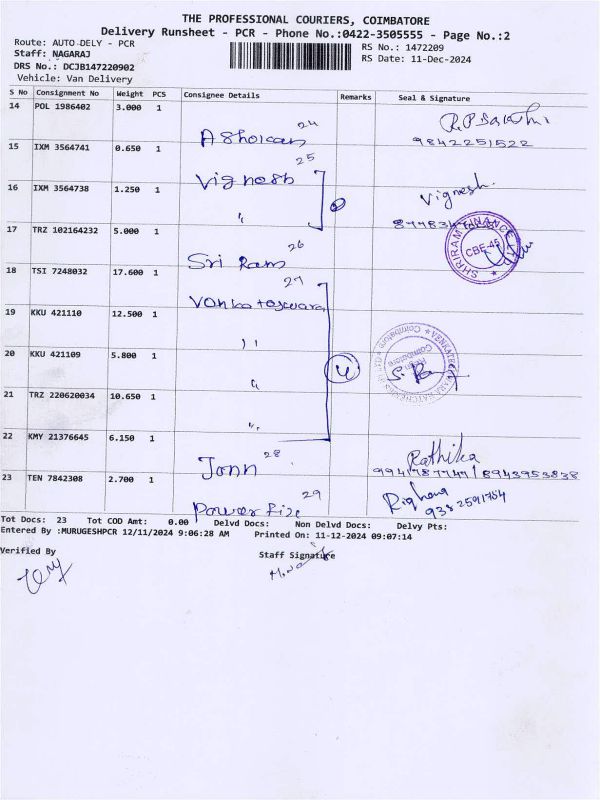 THE PROFESSIONAL COURIERS, COIMBATORE
Delivery Runsheet - PCR - Phone No.:0422-3505555 - Page No.:2
Route: AUTO DELY - PCR
RS No.: 1472209
Staff: NAGARAJ
RS Date: 11-Dec-2024
DRS No.: DCJB147220902
Vehicle: Van Delivery
S No Consignment No Weight PCS Consignee Details Remarks Seal & Signature
14 POL 1986402 3.000 1
24
Ashokan
9842251522
15 IXM 3564741 0.650 1
25
Vignesh
16 IXM 3564738 1.250 1
"
Vignesh
17 TRZ 102164232 5.000 1
26
Sri Ram
SHRIRAM FINANCE LTD
CBE-45
18 TSI 7248032 17.600 1
27
19 KKU 421110 12.500 1
"
20 KKU 421109 5.800 1
"
4
Coimbatore
21 TRZ 220620034 10.650 1
"
22 KMY 21376645 6.150 1
28
John
Rathika
23 TEN 7842308 2.700 1
29
Tot Docs: 23 Tot COD Amt: 0.00 Delvd Docs: Non Delvd Docs: Delvy Pts:
Entered By :MURUGESHPCR 12/11/2024 9:06:28 AM Printed On: 11-12-2024 09:07:14
Verified By Staff Signature